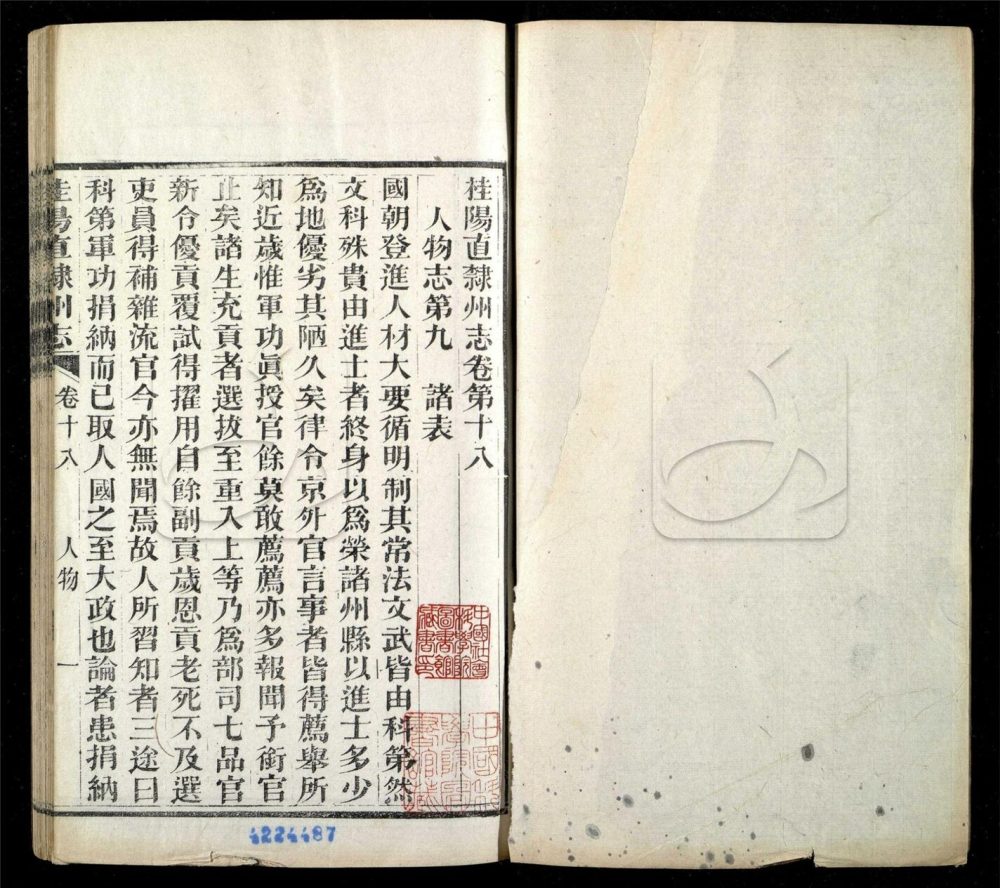 桂陽直隸州志卷第十八
人物志第九 諸表
國朝登進人材大要循明制其常法文武皆由科第然
文科殊貴由進士者終身以爲榮諸州縣以進士多少
爲地優劣其陋久矣律令京外官言事者皆得薦舉所
知近歲惟軍功眞授官餘莫敢薦薦亦多報聞予銜官
止矣諸生充貢者選拔至重入上等乃爲部司七品官
新令優貢覆試得擢用自餘副貢歲恩貢老死不及選
吏員得補雜流官今亦無聞焉故人所習知者三途曰
科第軍功捐納而已取人國之至大政也論者患捐納
桂陽直隸州志 卷十八 人物 一
中國社會
科學院
圖書館
藏書印
4224487